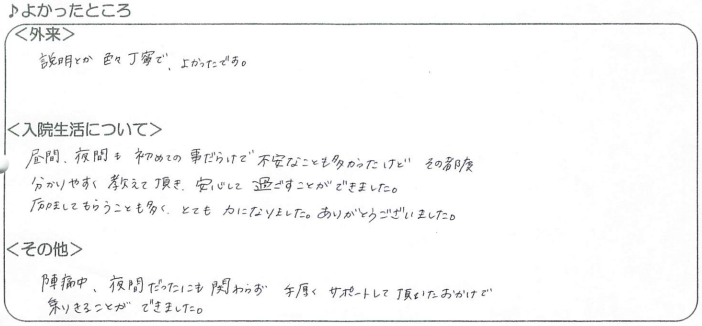 ♪よかったところ
＜外来＞
説明とか 色々丁寧で、よかったです。
＜入院生活について＞
昼間、夜間も 初めての事だらけで 不安なことも多かったけど その都度
分かりやすく 教えて頂き、安心して 過ごすことができました。
励ましてもらうことも多く、とても 力になりました。ありがとうございました。
＜その他＞
陣痛中、夜間だったにも関わらず 手厚く サポートして 頂いたおかげで
乗りきることが できました。